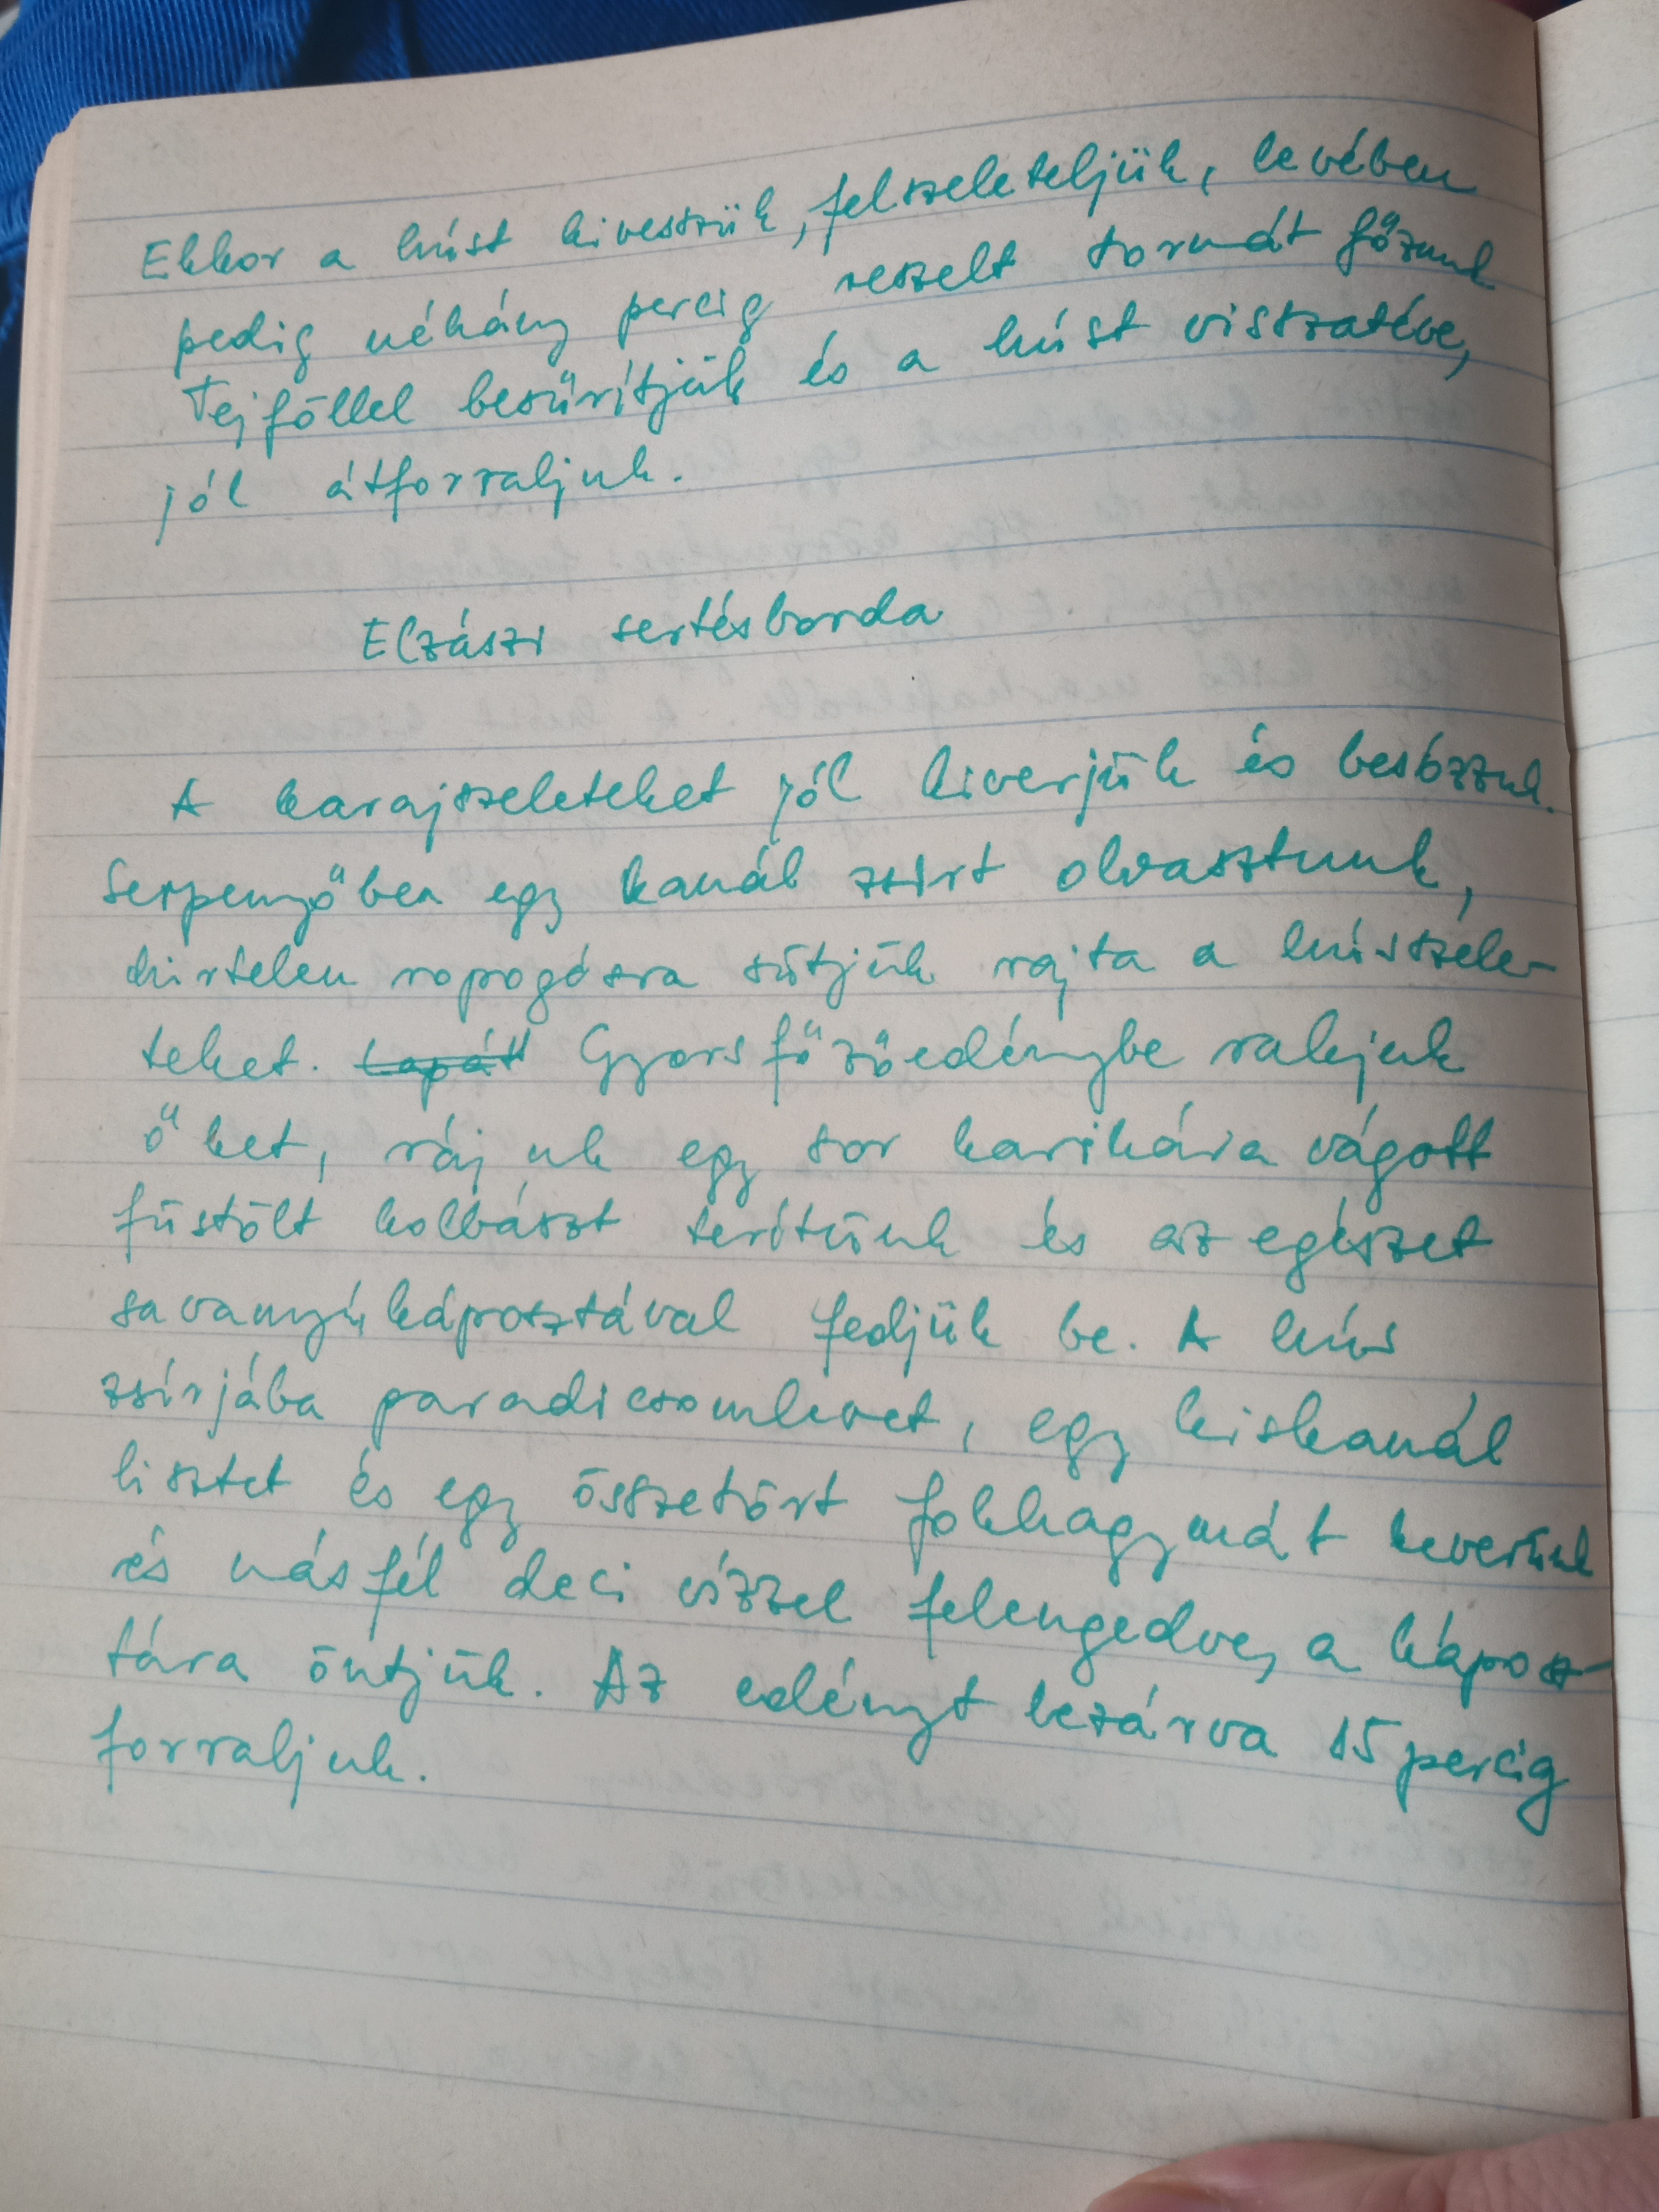 Ekkor a húst kivesszük, felszeleteljük, levében
pedig néhány percig reszelt tormát főzünk
Tejföllel besűrítjük és a húst visszatéve,
jól átforraljuk.
Elzászi sertésborda
A karajszeleteket jól kiverjük és besózzuk.
Serpenyőben egy kanál zsirt olvasztunk,
hirtelen ropogósra sütjük rajta a hússzele-
teket. Gyorsfőzőedénybe rakjuk
őket, rájuk egy sor karikára vágott
füstölt kolbászt terítünk és az egészet
savanyúkáposztával fedjük be. A hús
zsírjába paradicsomlevet, egy kiskanál
lisztet és egy összetört fokhagymát keverünk
és másfél deci vízzel felengedve, a káposz-
tára öntjük. Az edényt bezárva 15 percig
forraljuk.